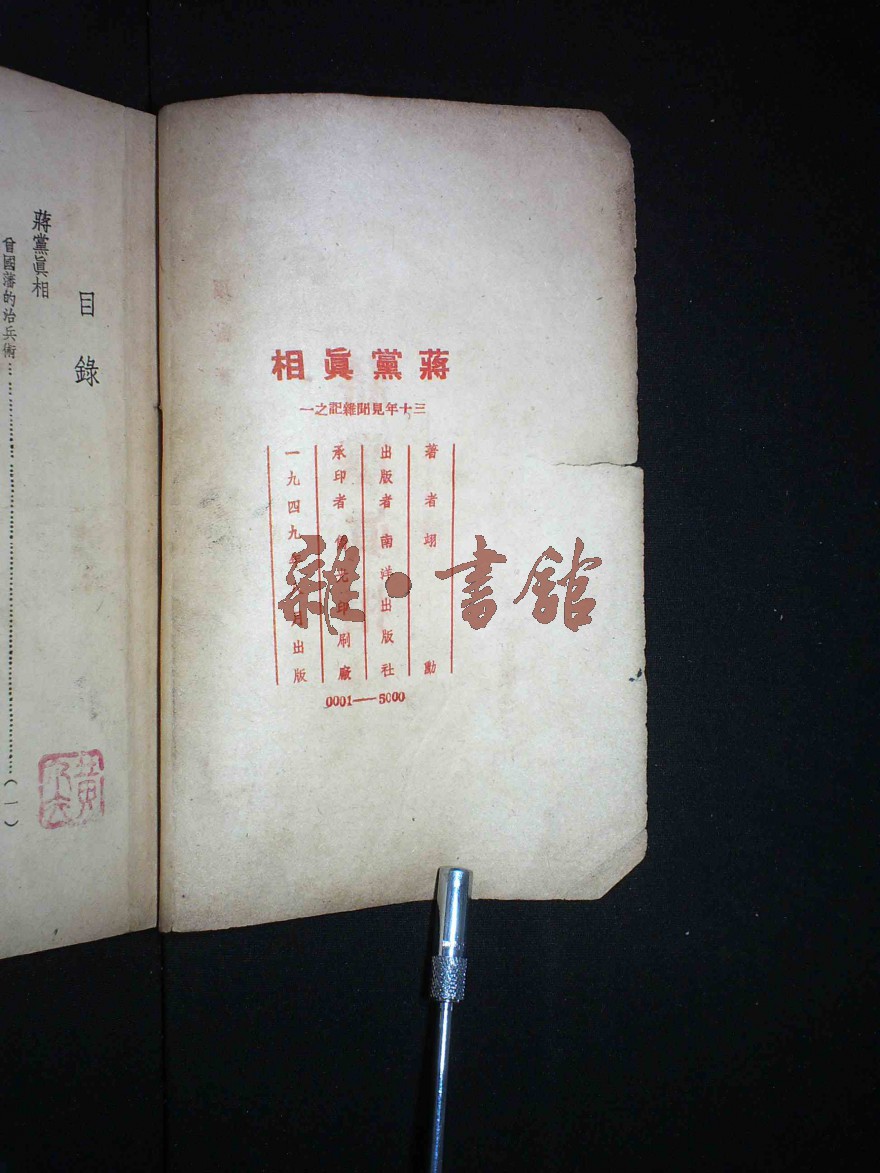 蔣黨眞相
三十年見聞雜記之一
著者 翊勳
出版者 南洋出版社
承印者 印刷廠
一九四九年 月出版
0001——5000
目錄
蔣黨眞相
曾國藩的治兵術……………………(一)
雜·書館